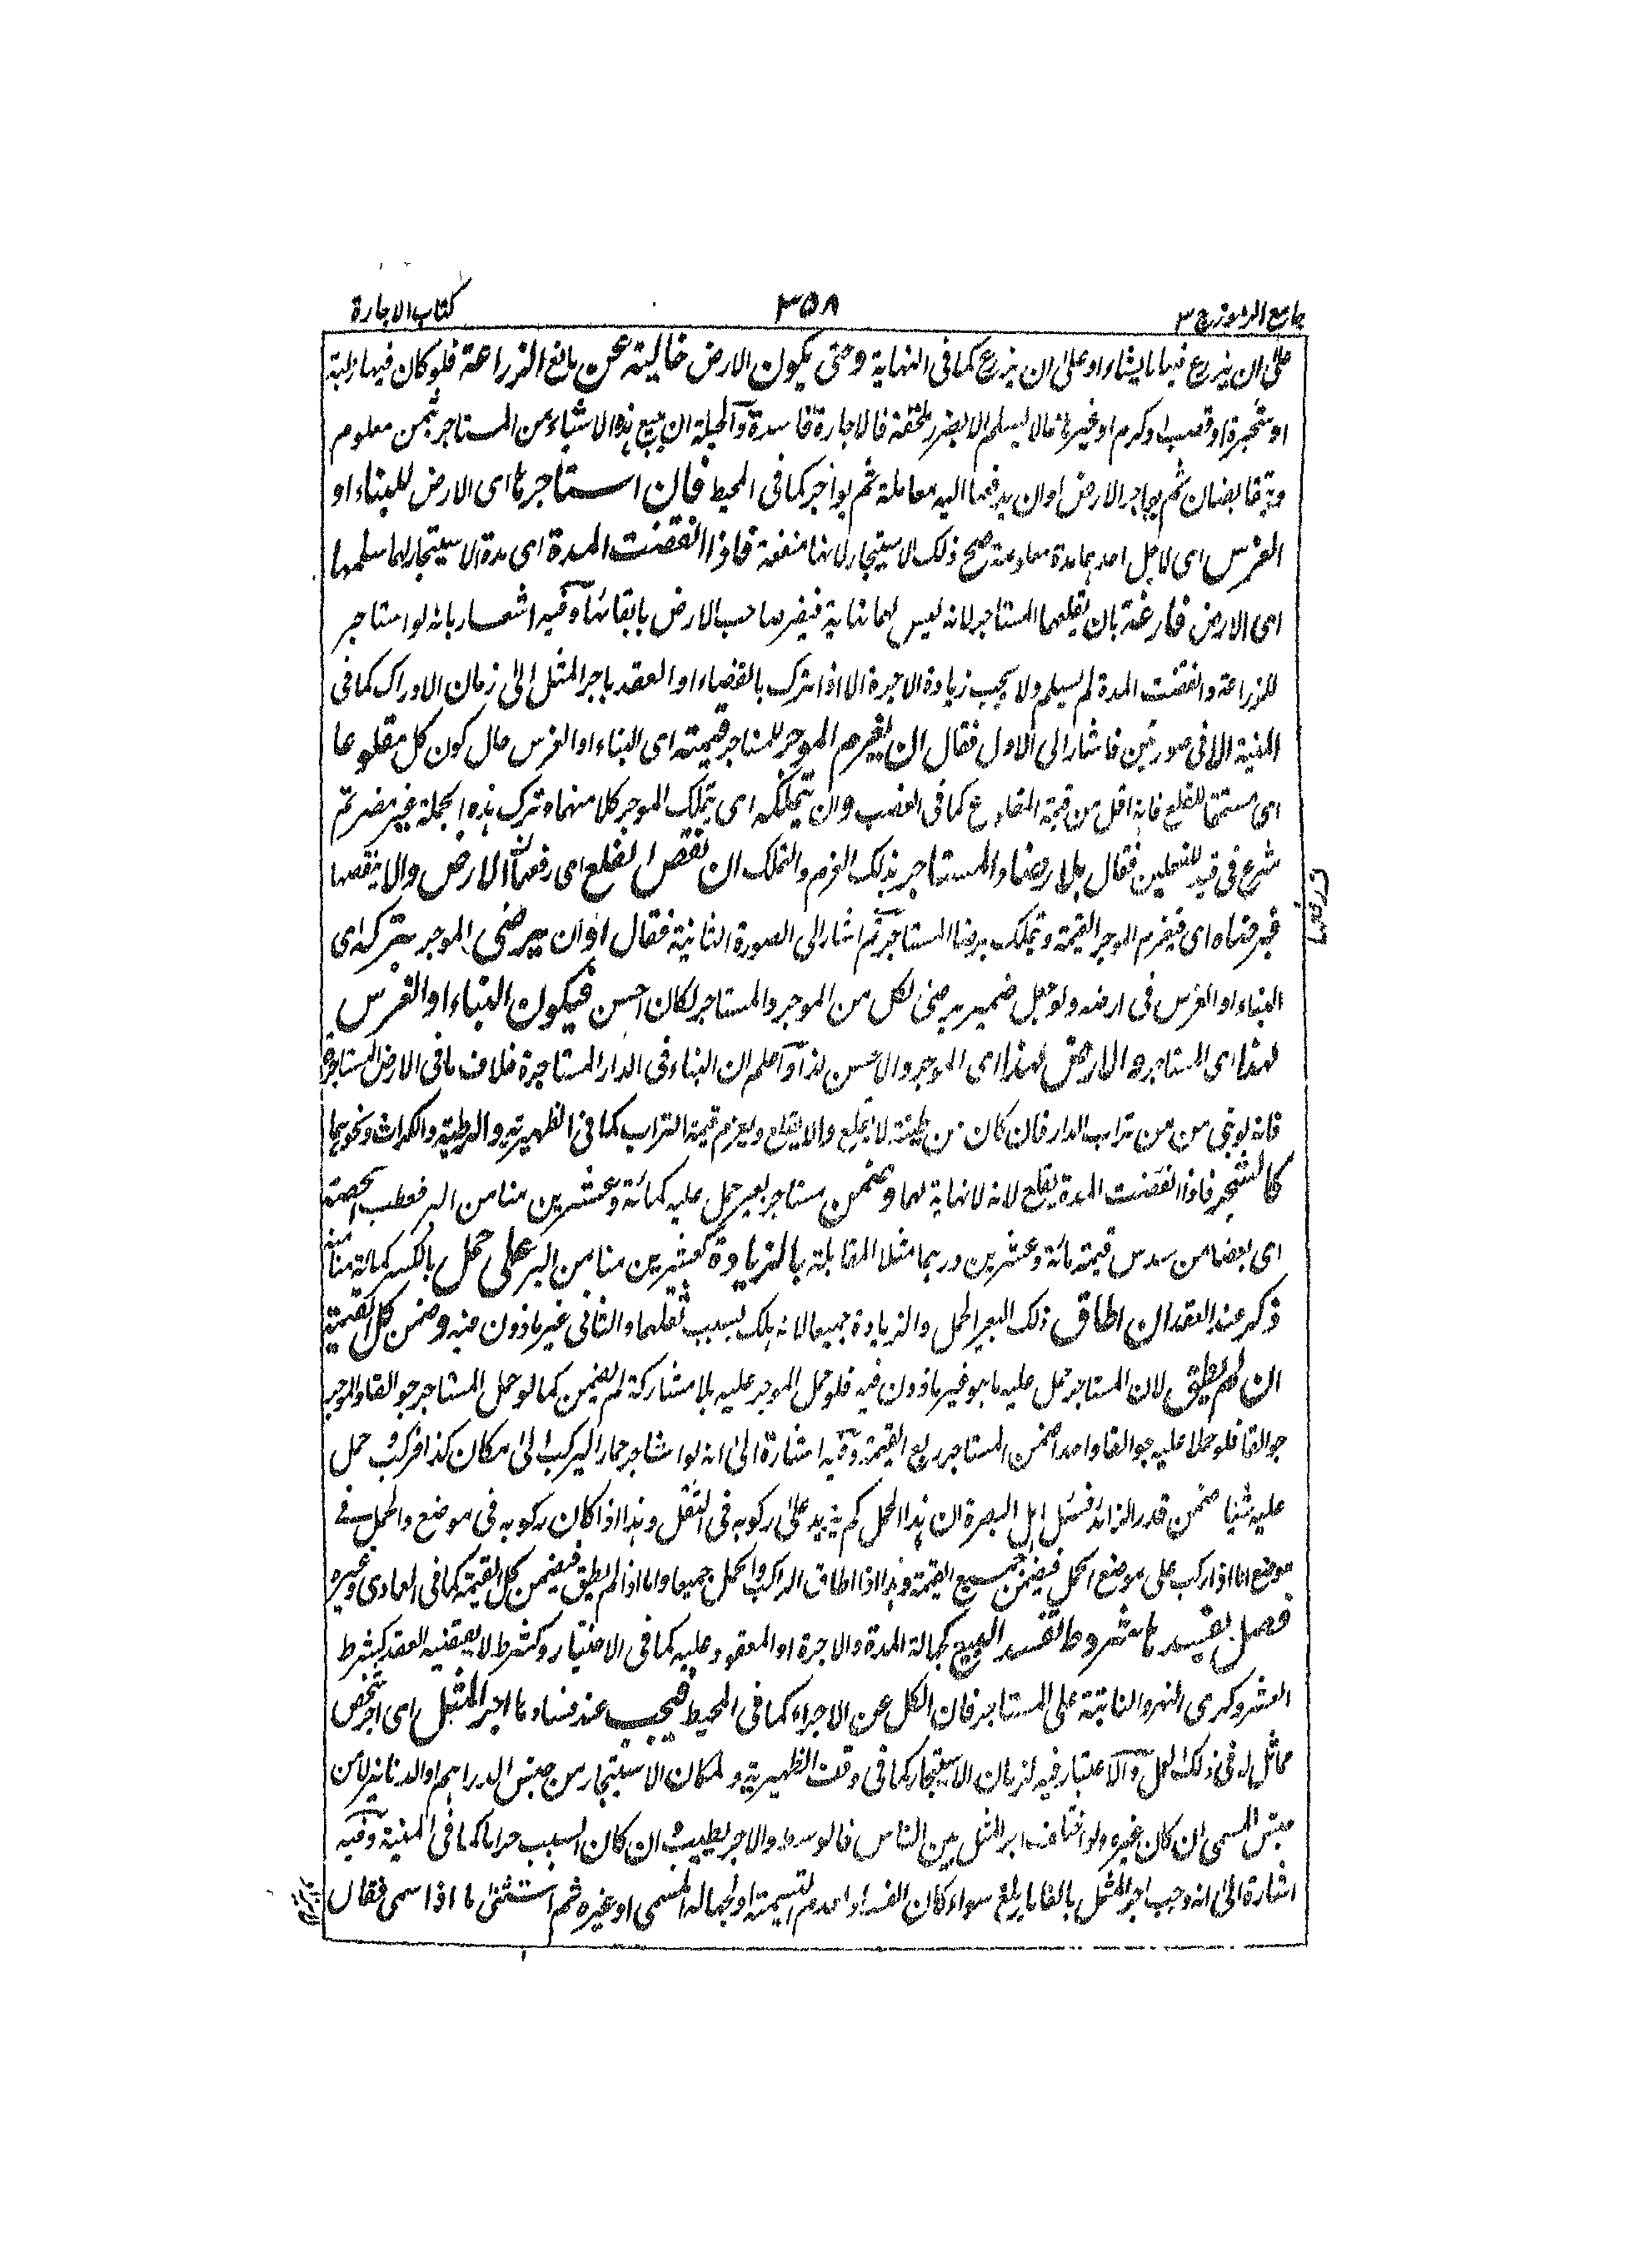 جامع الرموز ج ٣
٣٥٨
كتاب الاجارة
على ان يزرع فيها ما يشاء او على ان يزرع كما فى النهاية وحتى يكون الارض خالية عن مانع الزراعة فلو كان فيها رطبة
او شجرة او قصب او كرم او غيرها مما لا يسلم الا بضرر يلحقه فالاجارة فاسدة والحيلة ان يبيع هذه الاشياء من المستاجر بثمن معلوم
ويتقابضان ثم يواجر الارض او ان يدفعها اليه معاملة ثم يواجر كما فى المحيط فان استاجرها اى الارض للبناء او
الغرس اى لاجل احدهما مدة معلومة صح ذلك الاستيجار لانها منفعة فاذا انقضت المدة اى مدة الاستيجار لهما سلمها
اى الارض فارغة بان يقلعهما المستاجر لانه ليس لهما نهاية فيضر صاحب الارض بابقائها وفيه اشعار بانه لو استاجر
للزراعة وانقضت المدة لم يسلم ولا يجب زيادة الاجرة الا اذا ترك بالقضاء او العقد باجر المثل الى زمان الادراك كما فى
المنية الا فى صورتين فاشار الى الاول فقال ان يغرم الموجر للمستاجر قيمته اى البناء او الغرس حال كون كل مقلوعا
اى مستحقا للقلع فانه اقل من قيمة المقلوع كما فى الغصب وان يتملكه اى يتملك الموجر كلا منهما وترك هذه الجملة غير مضر ثم
شرع فى قيد للفعلين فقال بلا رضاء المستاجر بذلك الغرم والتملك ان نقص القلع اى رفعهما الارض والا ينقصها
فبرضاه اى فيغرم الموجر القيمة ويتملك برضا المستاجر ثم اشار الى الصورة الثانية فقال او ان يرضى الموجر بتركه اى
البناء او الغرس فى ارضه ولو جعل ضمير يرضى لكل من الموجر والمستاجر لكان احسن فيكون البناء او الغرس
لهذا اى المستاجر والارض لهذا اى الموجر والاحسن لذا واعلم ان البناء فى الدار المستاجرة خلاف ما فى الارض المستاجرة
فانه لو بنى من من تراب الدار فان كان من طينة لا يقلع والا يقلع ويغرم قيمة التراب كما فى الظهيرية والرطبة والكراث ونحوهما
كالشجر فاذا انقضت المدة يقلع لانه لا نهاية لهما وضمن مستاجر بعير حمل عليه كمائة وعشرين منا من البر فعطب بحصته
اى بعضا من سدس قيمته مائة وعشرين درهما مثلا المقابلة بالزيادة كعشرين منا من البر على حمل بالكسر كمائة منا منه
ذكر عند العقد ان اطاق ذلك البعير الحمل والزيادة جميعا لانه هلك بسبب ثقلهما والثانى غير ماذون فيه وضمن كل القيمة
ان لم يطق لان المستاجر حمل عليه ما هو غير ماذون فيه فلو حمل الموجر عليه بلا مشاركة لم يضمن كما لو حمل المستاجر جوالقا والموجر
جوالقا فلو حملا عليه جوالقا واحدا ضمن المستاجر ربع القيمة وفيه اشارة الى انه لو استاجر حمارا ليركب الى مكان كذا فركب وحمل
عليه شيئا ضمن قدر الزائد فسئل اهل البصرة ان هذا الحمل كم يزيد على ركوبه فى الثقل وهذا اذا كان ركوبه فى موضع والحمل فى
موضع اما اذا ركب على موضع الحمل فيضمن جميع القيمة وهذا اذا اطاق الراكب والحمل جميعا واما اذا لم يطق فيضمن كل القيمة كما فى العمادى وغيره
فصل يفسدها شروط تفسد البيع كجهالة المدة والاجرة او المعقود عليه كما فى الاختيار وكشرط لا يقتضيه العقد كشرط
العشر وكرى النهر والنائبة على المستاجر فان الكل عن الاجراء كما فى المحيط فيجب عند فسادها اجر المثل اى اجر شخص
مماثل له فى ذلك العمل والاعتبار فيه لزمان الاستيجار كما فى وقف الظهيرية ولمكان الاستيجار من جنس الدراهم او الدنانير لا من
جنس المسمى ان كان غيره ولو اختلف اجر المثل بين الناس فالوسط والاجر يطيب ان كان السبب حراما كما فى المنية وفيه
اشارة الى انه وجب اجر المثل بالغا ما بلغ سواء كان الفساد لعدم التسمية او لجهالة المسمى او غيره ثم استثنى ما اذا سمى فقال